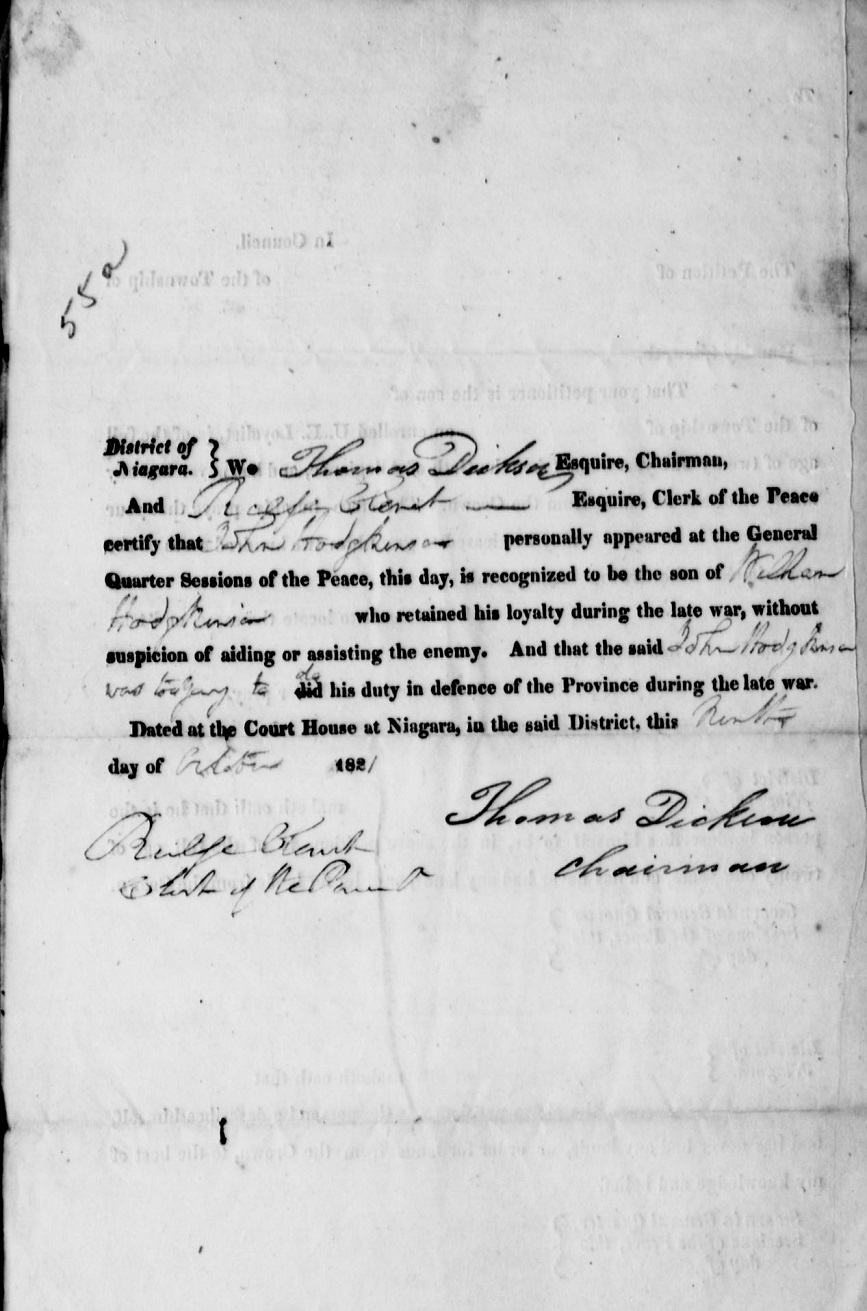 55a
District of Niagara. } We Thomas Dickson Esquire, Chairman,
And Ralfe Clench Esquire, Clerk of the Peace
certify that John Hodgkinson personally appeared at the General
Quarter Sessions of the Peace, this day, is recognized to be the son of William
Hodgkinson who retained his loyalty during the late war, without
suspicion of aiding or assisting the enemy. And that the said John Hodgkinson
was to young to do did his duty in defence of the Province during the late war.
Dated at the Court House at Niagara, in the said District, this Ninth
day of October 1821
Thomas Dickson
Chairman
Ralfe Clench
Clerk of the Peace